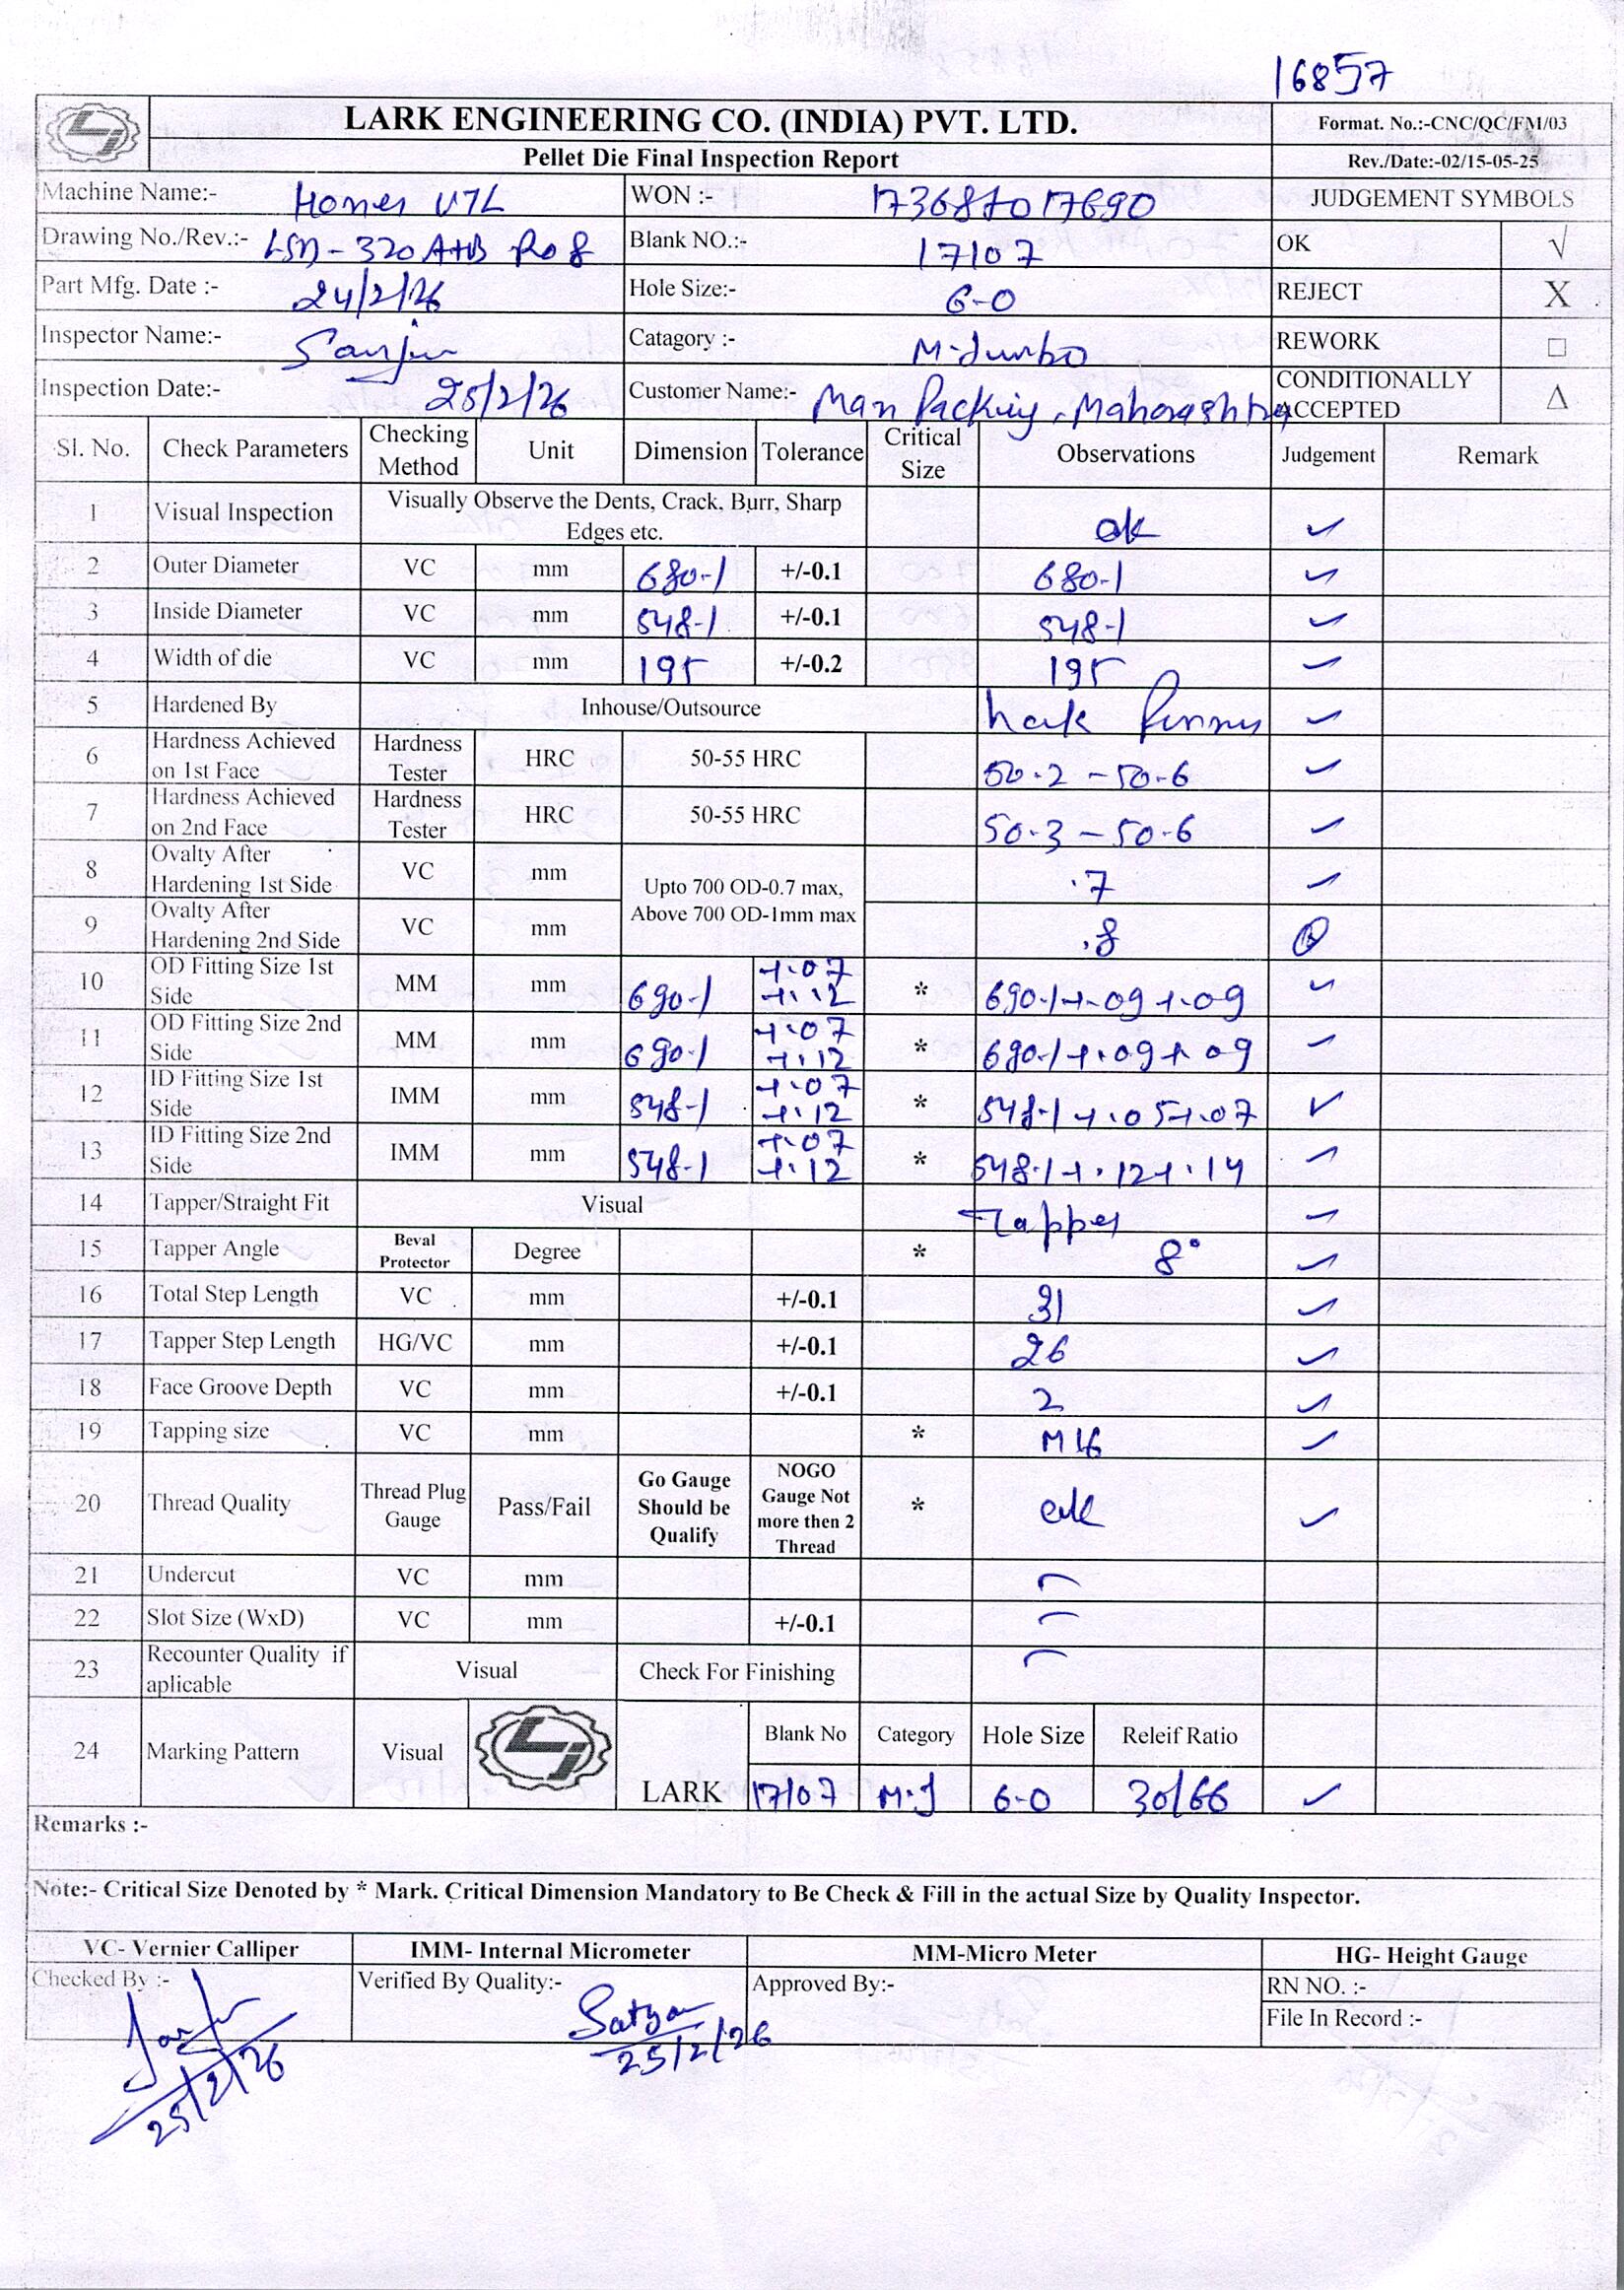 16857
LARK ENGINEERING CO. (INDIA) PVT. LTD.
Format. No.:-CNC/QC/FM/03
Pellet Die Final Inspection Report
Rev./Date:-02/15-05-25
Machine Name:- VTL WON :- JUDGEMENT SYMBOLS
Drawing No./Rev.:- Blank NO.:- 17107 OK √
Part Mfg. Date :- 24/2/26 Hole Size:- 6-0 REJECT X
Inspector Name:- Sanjiv Catagory :- M-Jumbo REWORK □
Inspection Date:- 25/2/26 Customer Name:- Man Packing, Maharashtra CONDITIONALLY ACCEPTED Δ
Sl. No. Check Parameters Checking Method Unit Dimension Tolerance Critical Size Observations Judgement Remark
1 Visual Inspection Visually Observe the Dents, Crack, Burr, Sharp Edges etc. ok ✓
2 Outer Diameter VC mm 680-1 +/-0.1 680-1 ✓
3 Inside Diameter VC mm 548-1 +/-0.1 548-1 ✓
4 Width of die VC mm 195 +/-0.2 195 ✓
5 Hardened By Inhouse/Outsource ✓
6 Hardness Achieved on 1st Face Hardness Tester HRC 50-55 HRC 50.2 - 50.6 ✓
7 Hardness Achieved on 2nd Face Hardness Tester HRC 50-55 HRC 50.3 - 50.6 ✓
8 Ovalty After Hardening 1st Side VC mm Upto 700 OD-0.7 max, Above 700 OD-1mm max .7 ✓
9 Ovalty After Hardening 2nd Side VC mm .8
10 OD Fitting Size 1st Side MM mm 690-1 +.07 +.12 * 690-1+.09+.09 ✓
11 OD Fitting Size 2nd Side MM mm 690-1 +.07 +.12 * 690-1+.09+.09 ✓
12 ID Fitting Size 1st Side IMM mm 548-1 +.07 +.12 * 548-1+.05+.07 ✓
13 ID Fitting Size 2nd Side IMM mm 548-1 +.07 +.12 * 548-1+.12+.14 ✓
14 Tapper/Straight Fit Visual Tapper ✓
15 Tapper Angle Beval Protector Degree * 8° ✓
16 Total Step Length VC mm +/-0.1 31 ✓
17 Tapper Step Length HG/VC mm +/-0.1 26 ✓
18 Face Groove Depth VC mm +/-0.1 2 ✓
19 Tapping size VC mm * M16 ✓
20 Thread Quality Thread Plug Gauge Pass/Fail Go Gauge Should be Qualify NOGO Gauge Not more then 2 Thread * ok ✓
21 Undercut VC mm -
22 Slot Size (WxD) VC mm +/-0.1 -
23 Recounter Quality if aplicable Visual Check For Finishing -
24 Marking Pattern Visual LARK Blank No Category Hole Size Releif Ratio
17107 M.J 6-0 30/66 ✓
Remarks :-
Note:- Critical Size Denoted by * Mark. Critical Dimension Mandatory to Be Check & Fill in the actual Size by Quality Inspector.
VC- Vernier Calliper IMM- Internal Micrometer MM-Micro Meter HG- Height Gauge
Checked By :- Verified By Quality:- Approved By:- RN NO. :-
File In Record :-
Satyam
25/2/26 25/2/26